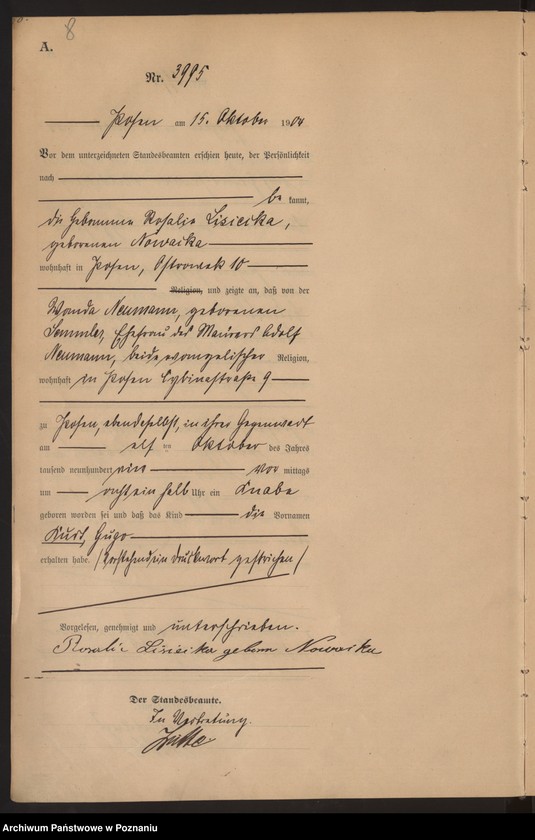 8
A.
Nr. 3995
Posen am 15. Oktober 1904
Vor dem unterzeichneten Standesbeamten erschien heute, der Persönlichkeit
nach
be kannt,
die Hebamme Rosalie Lisiecka,
geborenen Nowacka
wohnhaft in Posen, Ostrowek 10
Religion, und zeigte an, daß von der
Wanda Neumann, geborenen
Semmler, Ehefrau des Maurers Adolf
Neumann, beide evangelischer Religion,
wohnhaft in Posen Cybinastraße 9
zu Posen, ebendaselbst, in ihrer Gegenwart
am elf ten Oktober des Jahres
tausend neunhundert vier vor mittags
um achteinhalb Uhr ein Knabe
geboren worden sei und daß das Kind die Vornamen
Kurt, Hugo
erhalten habe. (Vorstehend ein Druckwort gestrichen)
Vorgelesen, genehmigt und unterschrieben.
Rosalie Lisiecka geborn Nowacka
Der Standesbeamte.
In Vertretung.
Archiwum Państwowe w Poznaniu